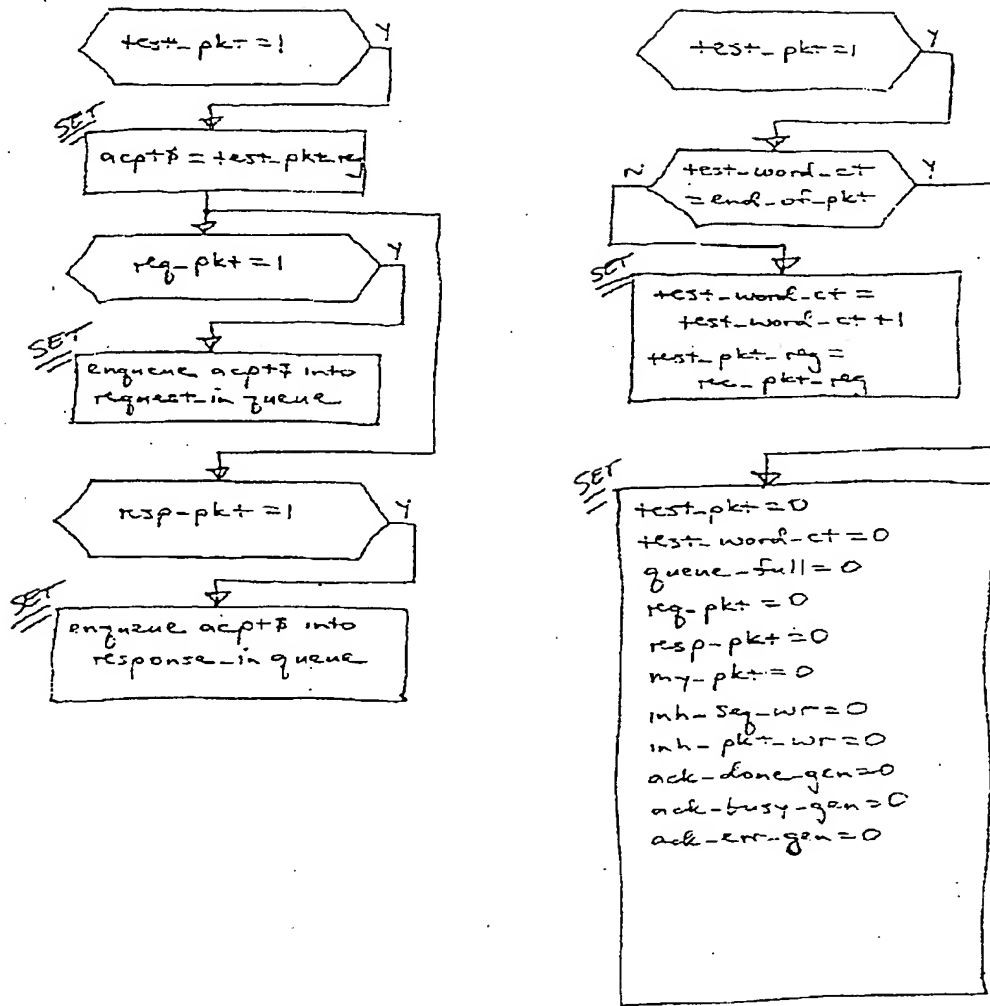 test_pkt=1
Y
SET
acpt$ = test_pkt_reg
req_pkt=1
Y
SET
enqueue acpt$ into
request_in queue
resp-pkt=1
Y
SET
enqueue acpt$ into
response_in queue
test_pkt=1
Y
N
test-word-ct
=end-of-pkt
Y
SET
test-word-ct =
test-word-ct+1
test_pkt-reg =
rec_pkt-reg
SET
test-pkt=0
test-word-ct=0
queue-full=0
req-pkt=0
resp-pkt=0
my-pkt=0
inh-seq-wr=0
inh-pkt-wr=0
ack-done-gen=0
ack-busy-gen=0
ack-err-gen=0